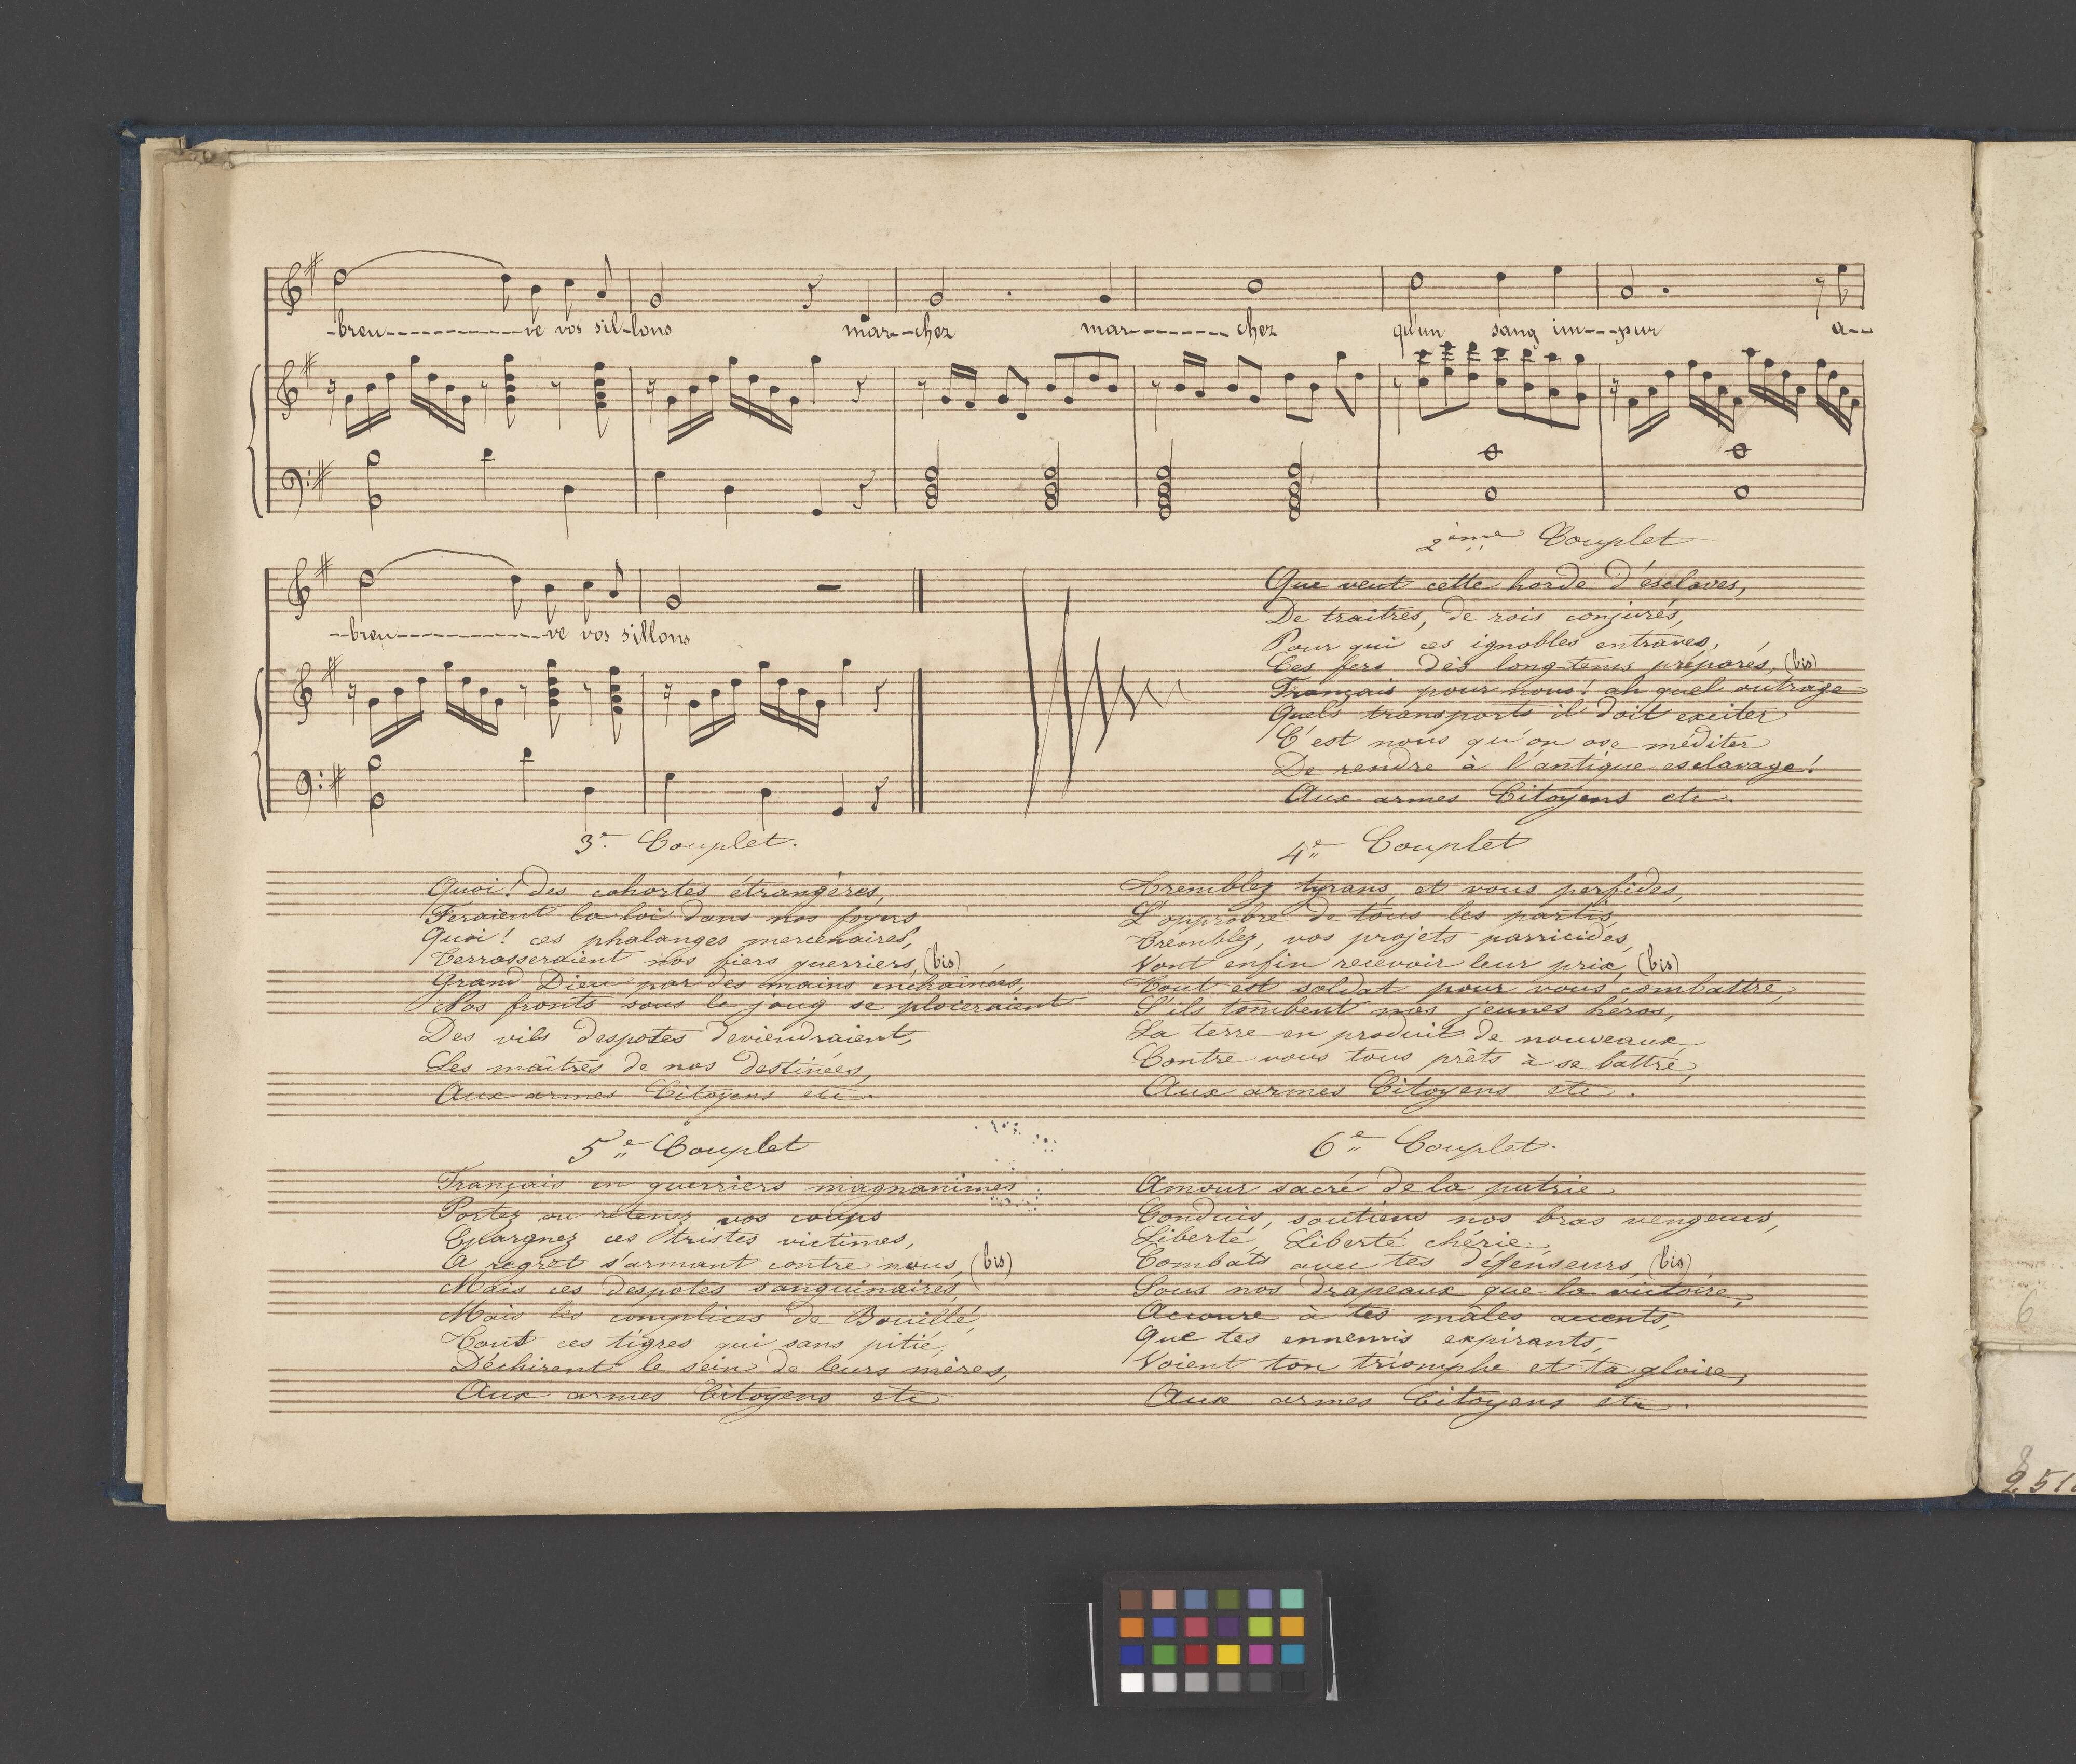 -breu------------ve vos sil-lons mar--chez mar---------chez qu'un sang im---pur a--
--breu---------------ve vos sillons
2ème Couplet
Que veut cette horde d'esclaves,
De traitres, de rois conjurés,
Pour qui ces ignobles entraves,
Ces fers dès long-tems préparés, (bis)
Français pour nous! ah quel outrage
Quels transports il doit exciter
C'est nous qu'on ose méditer
De rendre à l'antique esclavage!
Aux armes Citoyens etc.
3e Couplet.
Quoi! des cohortes étrangères,
Feraient la loi dans nos foyers
Quoi! ces phalanges mercenaires,
Terrasseraient nos fiers guerriers, (bis)
Grand Dieu par des mains enchaînées,
Nos fronts sous le joug se ploieraient
Des vils despotes deviendraient,
Les maîtres de nos destinées,
Aux armes Citoyens etc.
4e Couplet
Tremblez tyrans, et vous perfides,
L'opprobre de tous les partis,
Tremblez, vos projets parricides,
Vont enfin recevoir leur prix, (bis)
Tout est soldat pour vous combattre,
S'ils tombent nos jeunes héros,
La terre en produit de nouveaux
Contre vous tous prêts à se battre,
Aux armes Citoyens etc.
5e Couplet
Français en guerriers magnanimes
Portez ou retenez vos coups
Epargnez ces tristes victimes,
A regret s'armant contre nous, (bis)
Mais ces despotes sanguinaires,
Mais les complices de Bouillé,
Tout ces tigres qui sans pitié,
Déchirent le sein de leurs mères,
Aux armes Citoyens etc
6e Couplet.
Amour sacré de la patrie
Conduis, soutiens nos bras vengeurs,
Liberté, Liberté chérie
Combats avec tes défenseurs, (bis)
Sous nos drapeaux que la victoire,
Accoure à tes mâles accents,
Que tes ennemis expirants,
Voient ton triomphe et ta gloire,
Aux armes Citoyens etc.
6